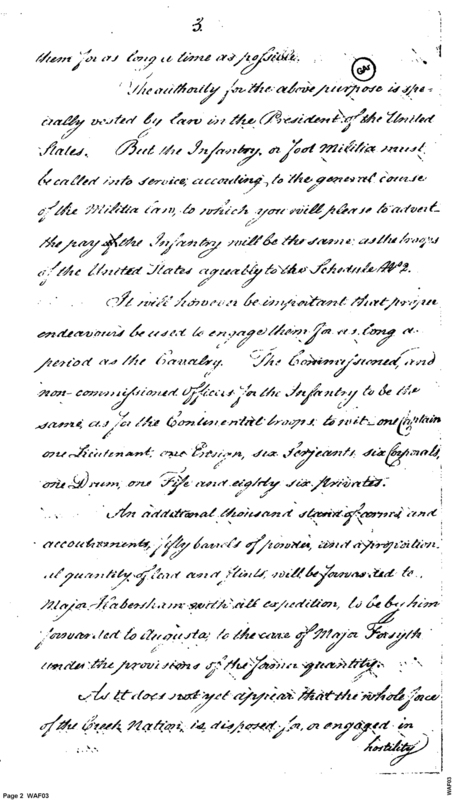 3.
them for as long a time as possible.
GAr
The authority for the above purpose is spe-
cially vested by law in the President of the United
States. But the Infantry, or foot Militia must
be called into service, according to the general course
of the Militia law, to which you will please to advert.
the pay of the Infantry will be the same as the troops
of the United States agreably to the Schedule No 2.
It will however be important that proper
endeavours be used to engage them for as long a
period as the Cavalry. The Commissioned, and
non-commissioned Officers for the Infantry to be the
same, as for the Continental troops; to wit - one Captain
one Lieutenant, one Ensign, six Serjeants, six Corporals,
one Drum, one Fife and eighty six privates.
An additional thousand stand of arms and
accoutrements, fifty barrels of powder, and a proportion-
al quantity of lead and flints, will be forwarded to
Major Habersham with all expedition, to be by him
forwarded to Augusta, to the care of Major Forsyth
under the provisions of the former quantity.
As it does not yet appear that the whole force
of the Creek Nation is disposed for, or engaged in
hostility
Page 2 WAF03
WAF03